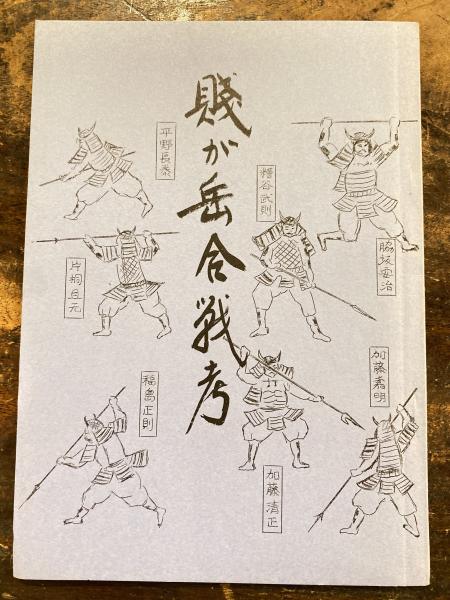 賤が岳合戦考
平野長泰
糟谷武則
脇坂安治
片桐且元
加藤嘉明
福島正則
加藤清正